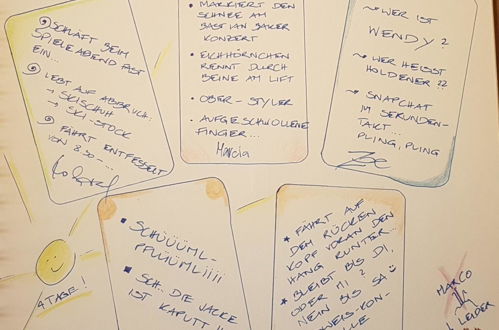 SCHLÄFT BEIM
SPIELEABEND FAST
EIN...
LEBT AUF ABBRUCH.
→ SKISCHUH
→ SKI-STOCK
FÄHRT ENTFESSELT
VON 8.30 - ...
MARKIERT DEN
SCHNEE AM
KONZERT
EICHHÖRNCHEN
RENNT DURCH
BEINE AM LIFT
OBER-STYLER
AUFGESCHWOLLENE
FINGER...
Marcia
WER IST
WENDY?
WER HEISST
HOLDENER??
SNAPCHAT
IM SEKUNDEN-
TAKT...
PLING, PLING
Zoe
4 TAGE!
SCHÜÜÜML-
PFLÜÜMLiiii
SCH... DIE JACKE
IST KAPUTT!!
FÄHRT AUF
DEM RÜCKEN
KOPF VORAN DEN
HANG RUNTER...
BLEIBT BIS DI,
ODER MI?
NEIN BIS SA
MARCO
LEIDER